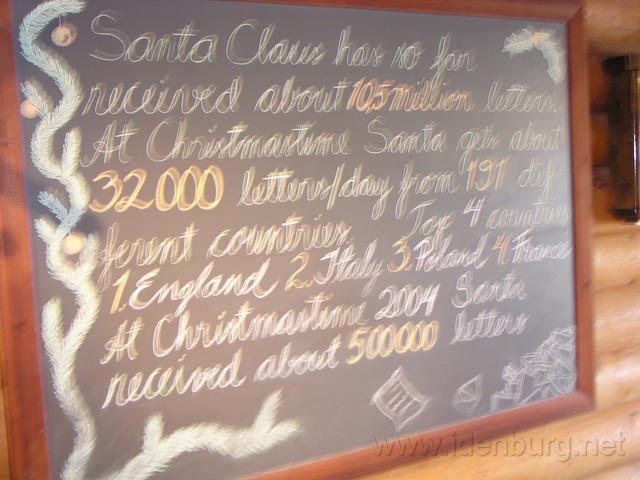 Santa Claus has so far
received about 10,5 million letters.
At Christmastime Santa gets about
32 000 letters/day from 191 dif-
ferent countries. Top 4 countries
1. England 2. Italy 3. Poland 4. France
At Christmastime 2004 Santa
received about 500000 letters
www.idenburg.net